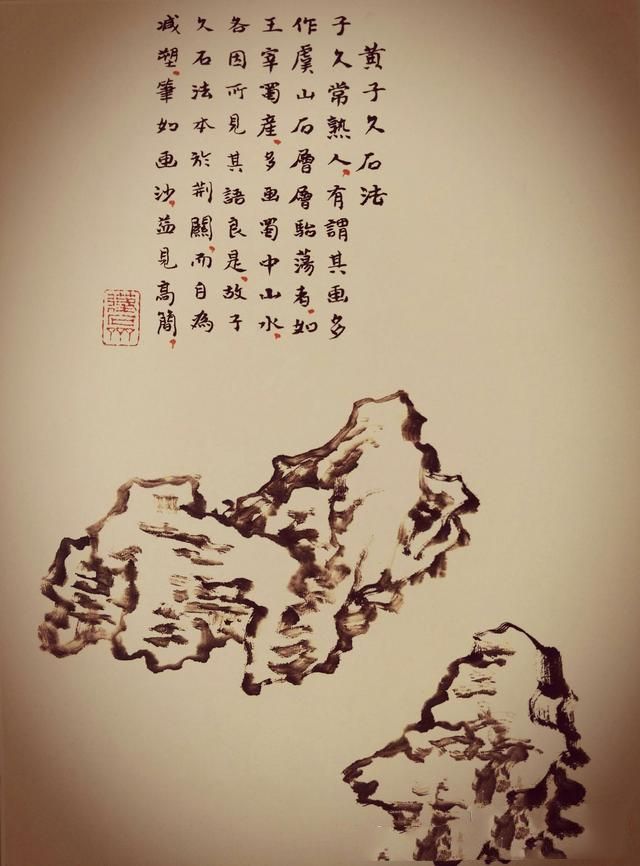 黃子久石法
子久常熟人，有謂其画多
作虞山石層層駘蕩者，如
王宰蜀産，多画蜀中山水，
各因所見其語良是，故子
久石法本於荆關，而自為
减塑，筆如画沙，益見高簡，